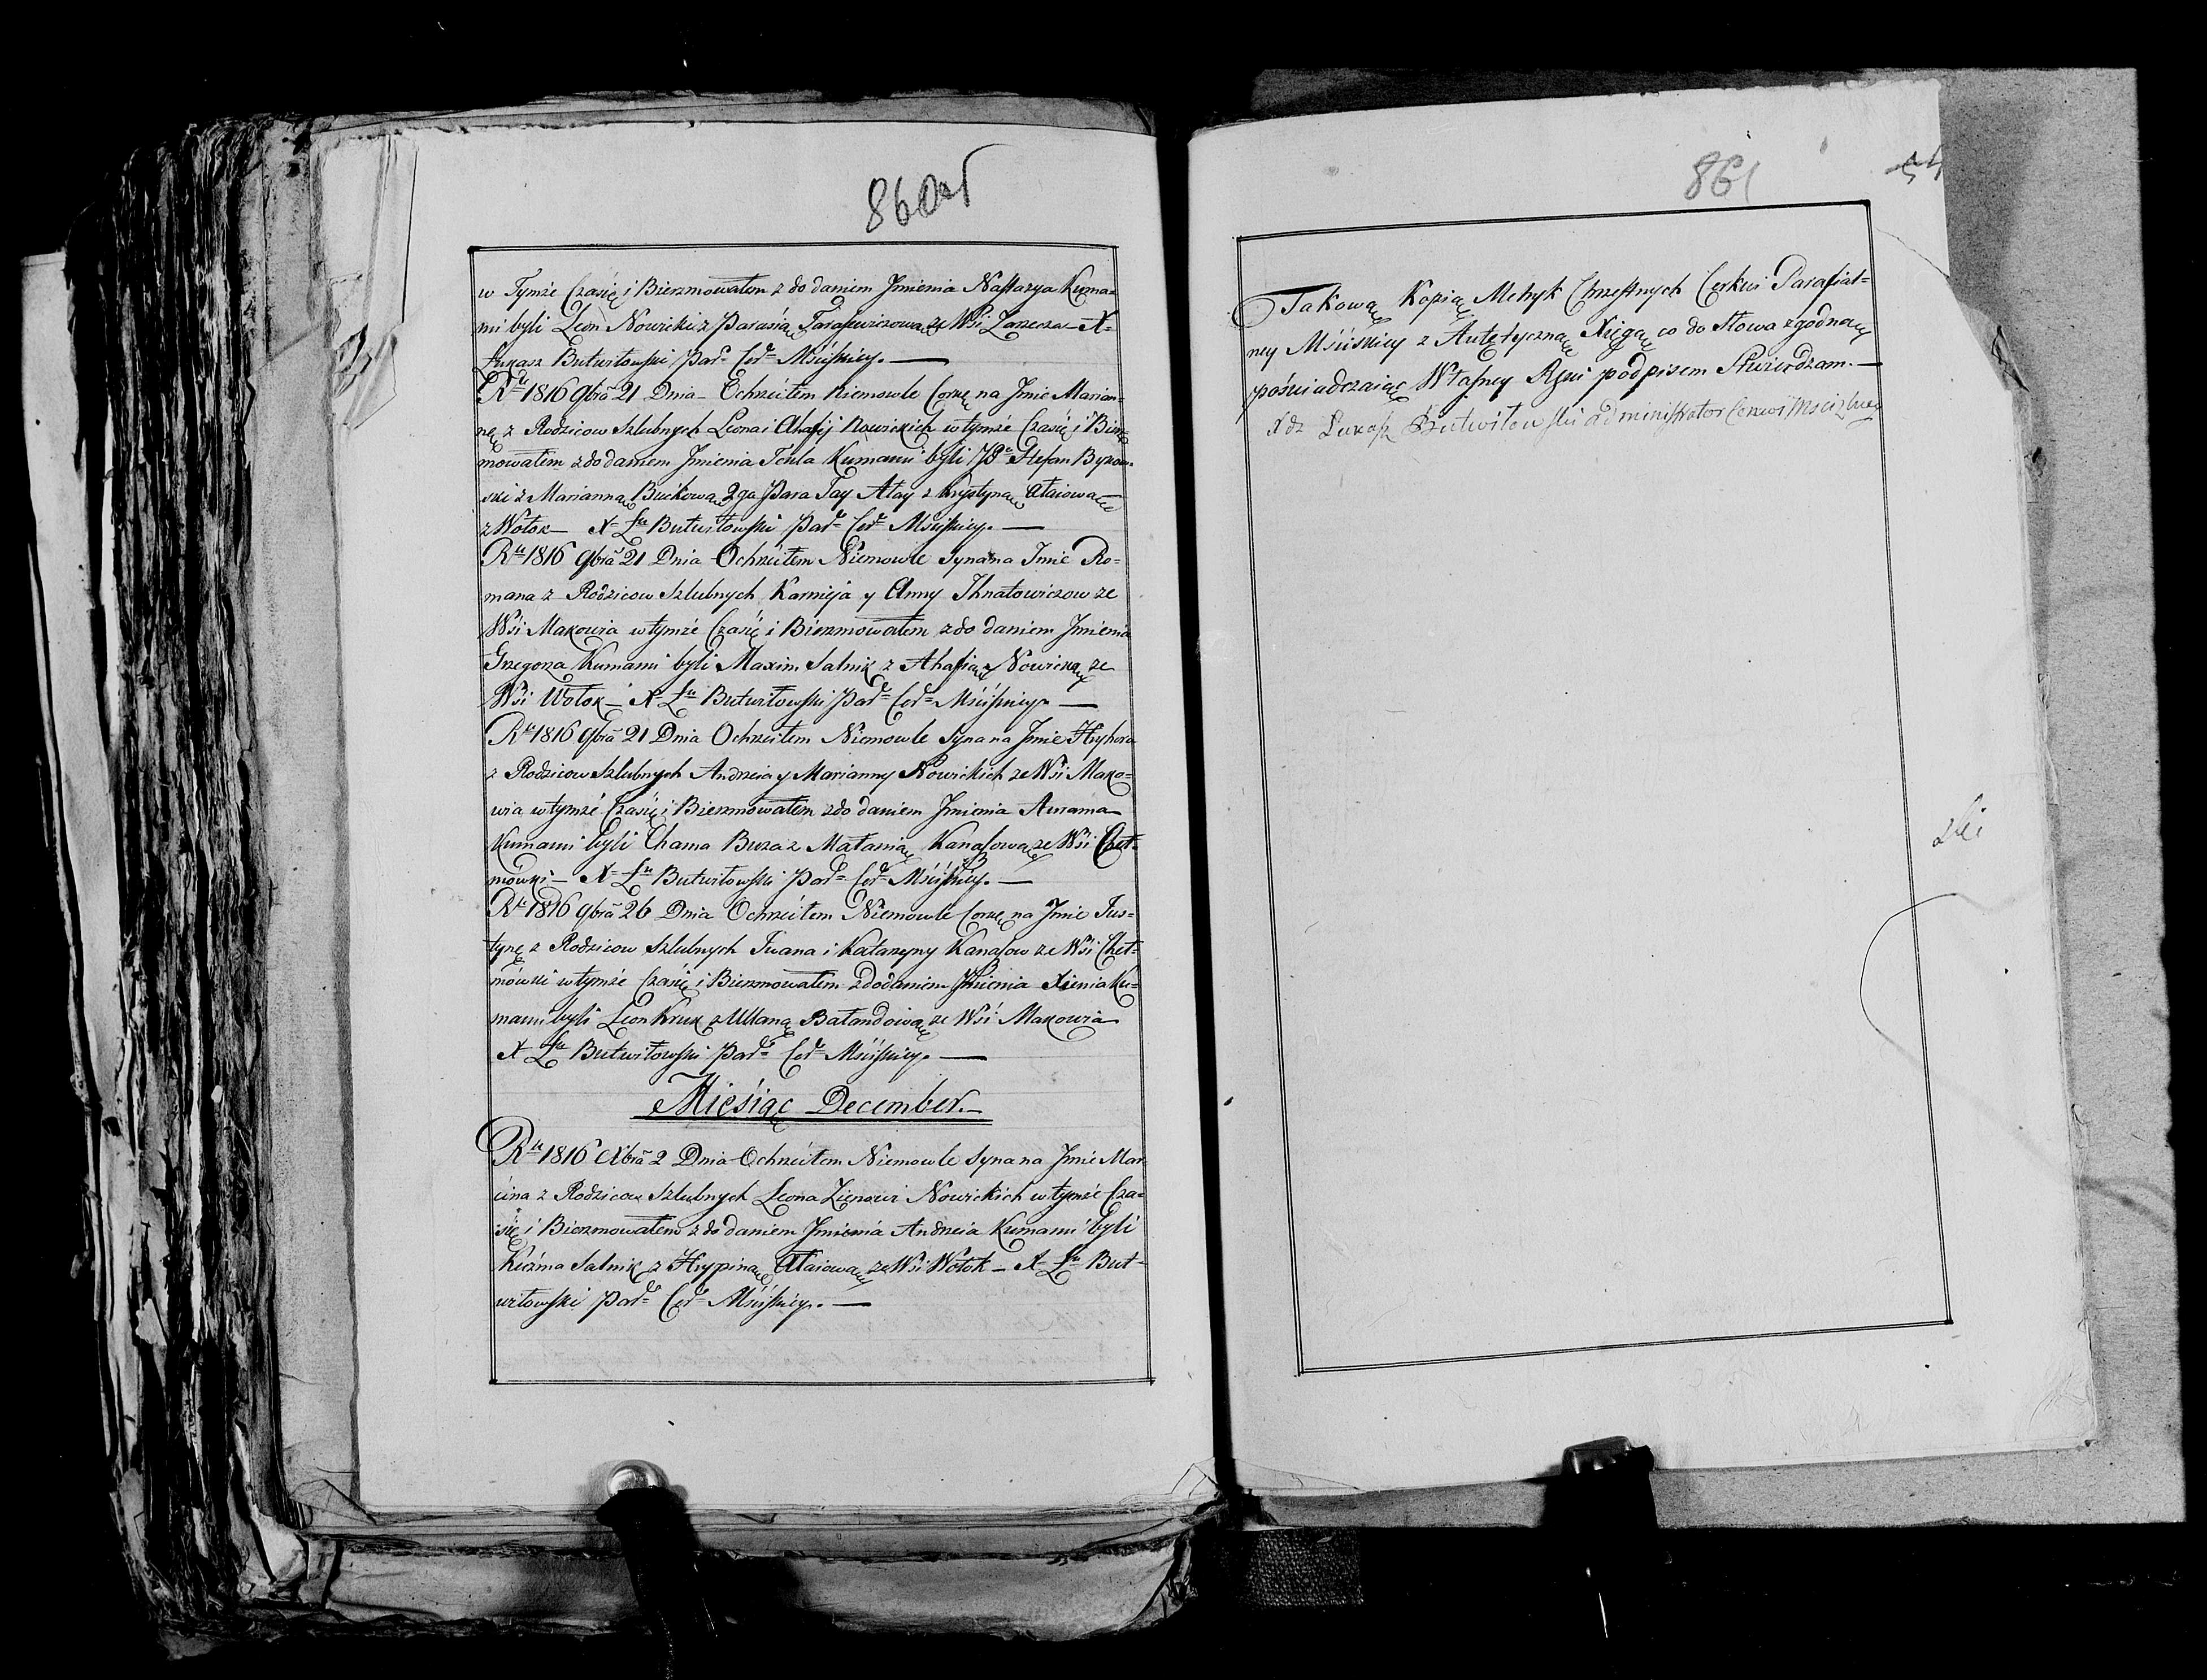 860об
w Tymże Czasię i Bierzmowałem z do daniem Jmienia Nastazya Kuma=
mi byli Leon Nowicki z Parasią Tarasewiczową ze Wsi Zarzecza X=
Łukasz Butwiłowski Par: Cer: Mściskiey.—
Rku 1816 9bra 21 Dnia Ochrzciłem Niemowle Corkę na Jmie Marian=
nę z Rodzicow Szlubnych Leona i Ahafij Nowickich w tymże Czasię i Bierz
mowałem z do daniem Jmienia Tekla Kumami byli Stefan
ski z Marianną Buckową 2ga Para Tay Ałay z Krystyną Ałaiową
z Wołok— X= Łu Butwiłowski Par= Cer= Mściskiey.—
Rku 1816 9bra 21 Dnia Ochrzciłem Niemowle Syna na Jmie Ro=
mana z Rodzicow Szlubnych Karnieja y Anny Ihnatowiczow ze
Wśi Makowia w tymże Czasię i Bierzmowałem z do daniem Jmienia
Grzegorza Kumami byli Maxim Salnik z Ahafią Nowicką ze
Wśi Wołok— X= Łu Butwiłowski Par= Cer= Mściskiey.—
Rku 1816 9bra 21 Dnia Ochrzciłem Niemowle Syna na Jmie Hryhora
z Rodzicow Szlubnych Andrzeia y Marianny Nowickich ze Wśi Mako=
wia w tymże Czasię i Bierzmowałem z do daniem Jmienia Awrama
Kumami byli Chama Buza z Małanią Kanasową ze Wśi Cheł=
mowki— X= Łu Butwiłowski Par= Cer= Mściskiey.—
Rku 1816 9bra 26 Dnia Ochrzciłem Niemowle Corkę na Jmie Jus=
tynę z Rodzicow Szlubnych Iwana i Katarzyny Kanasow ze Wśi Cheł=
mówki w tymże Czasię i Bierzmowałem z dodaniem Jmienia Xienia Ku=
mami byli Leon Kruk z Ullaną Bałandową ze Wśi Makowia
X Łu Butwiłowski Par= Cer= Mściskiey.—
Miesiąc December.—
Rku 1816 Xbra 2 Dnia Ochrzciłem Niemowle Syna na Jmie Mar
cina z Rodzicow Szlubnych Leona Zienowi Nowickich w tymże Cza=
się i Bierzmowałem z do daniem Jmienia Andrzeia Kumami byli
Kuźma Salnik z Hrypiną Ałaiową ze Wśi Wołok— X= Łu But=
wiłowski Par= Cer= Mściskiey.—
861
Takową Kopią Metryk Chrzestnych Cerkwi Parafial=
ney Mściskiey z Autętyczną Xięgą co do Słowa zgodną
poświadczaiąc Własney Ręki podpisem Stwierdzam.—
Xdz Łukasz Butwiłowski administrator Cerkwi